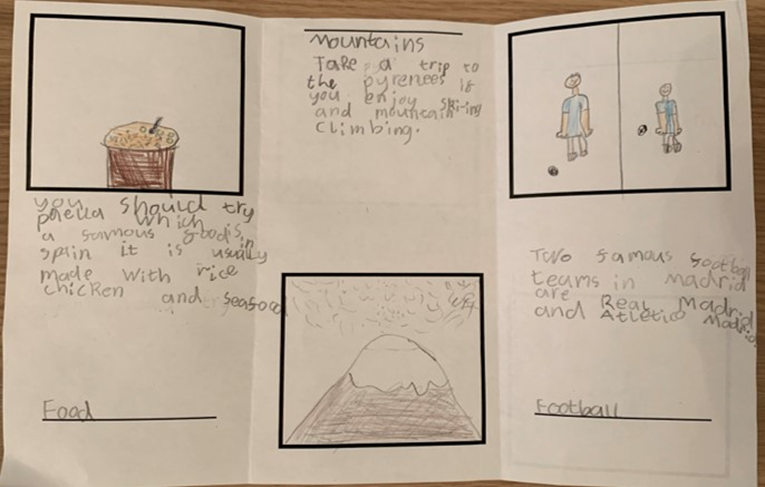 you should try
paella which
a famous food is in
spain it is usually
made with rice
chicken and seafood
Food
Mountains
Take a trip to
the pyrenees if
you enjoy ski-ing
and mountain
climbing.
Two famous football
teams in Madrid
are Real Madrid
and Atletico Madrid
Football